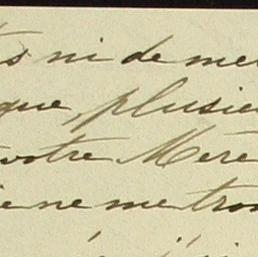 ts ni de me
que, plusie
votre Mère
ne me tro